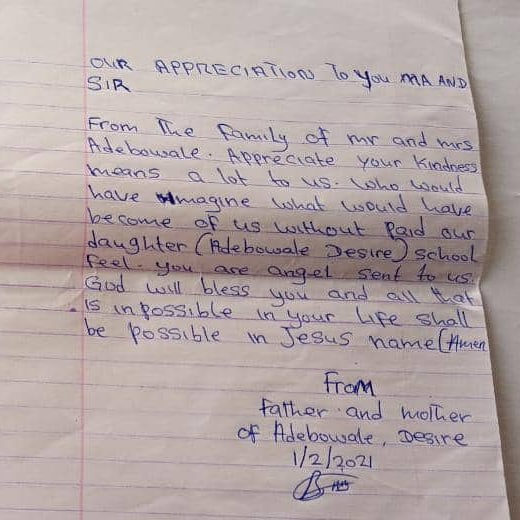 OUR APPRECIATION To you MA AND
SIR
From The family of mr and mrs
Adebowale. Appreciate your Kindness
means a lot to us. who would
have imagine what would have
become of us without Paid our
daughter (Adebowale Desire) school
feel. you are angel sent to us.
God will bless you and all that
is inpossible in your life shall
be possible in Jesus name (Amen
From
Father and mother
of Adebowale, Desire
1/2/2021